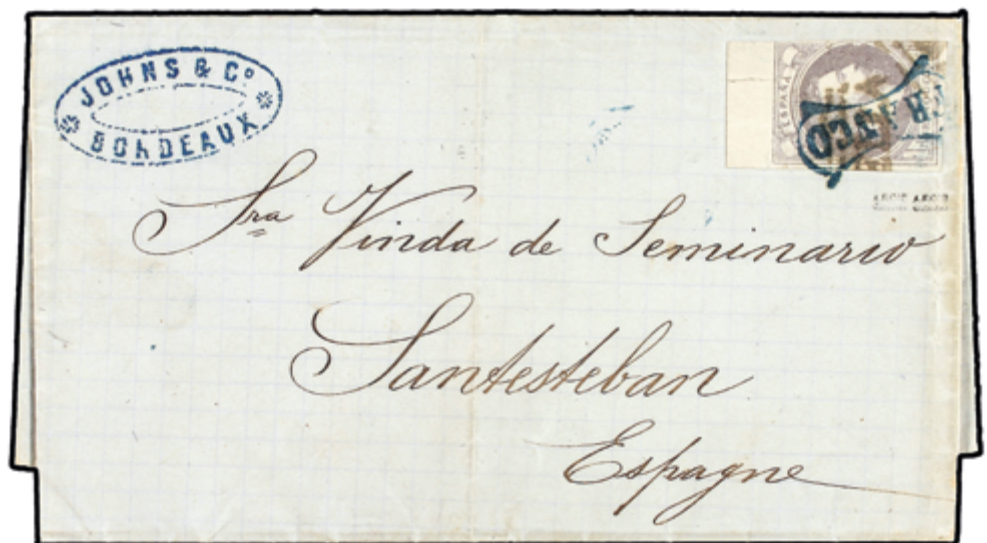 JOHNS & Cº
BORDEAUX
ESPAÑA
Sra Viuda de Seminario
Santesteban
Espagne